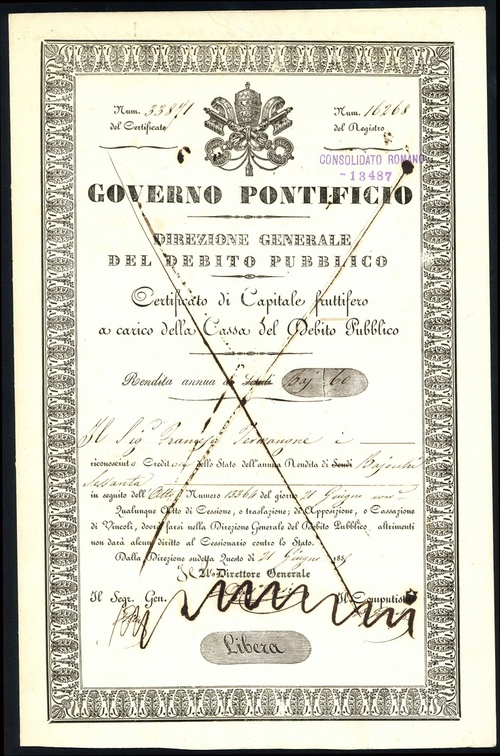 Num. 33871
del Certificato
Num. 16268
del Registro
CONSOLIDATO ROMANO
-13487
GOVERNO PONTIFICIO
DIREZIONE GENERALE
DEL DEBITO PUBBLICO
Certificato di Capitale fruttifero
a carico della Cassa del Debito Pubblico
Rendita annua di Scudi Baj 60
Il Sig.
riconosciuto Creditore dello Stato dell'annua Rendita di Scudi Bajocchi
Sessanta
in seguito dell'Atto Numero 13364 del giorno 21 Giugno
Qualunque Atto di Cessione, o traslazione; di Apposizione, o Cassazione
di Vincoli, dovrà farsi nella Direzione Generale del Debito Pubblico, altrimenti
non darà alcun diritto al Cessionario contro lo Stato.
Dalla Direzione sudetta Questo dì 21 Giugno
Il Direttore Generale
Il Segr. Gen.
Il Computista
Libera